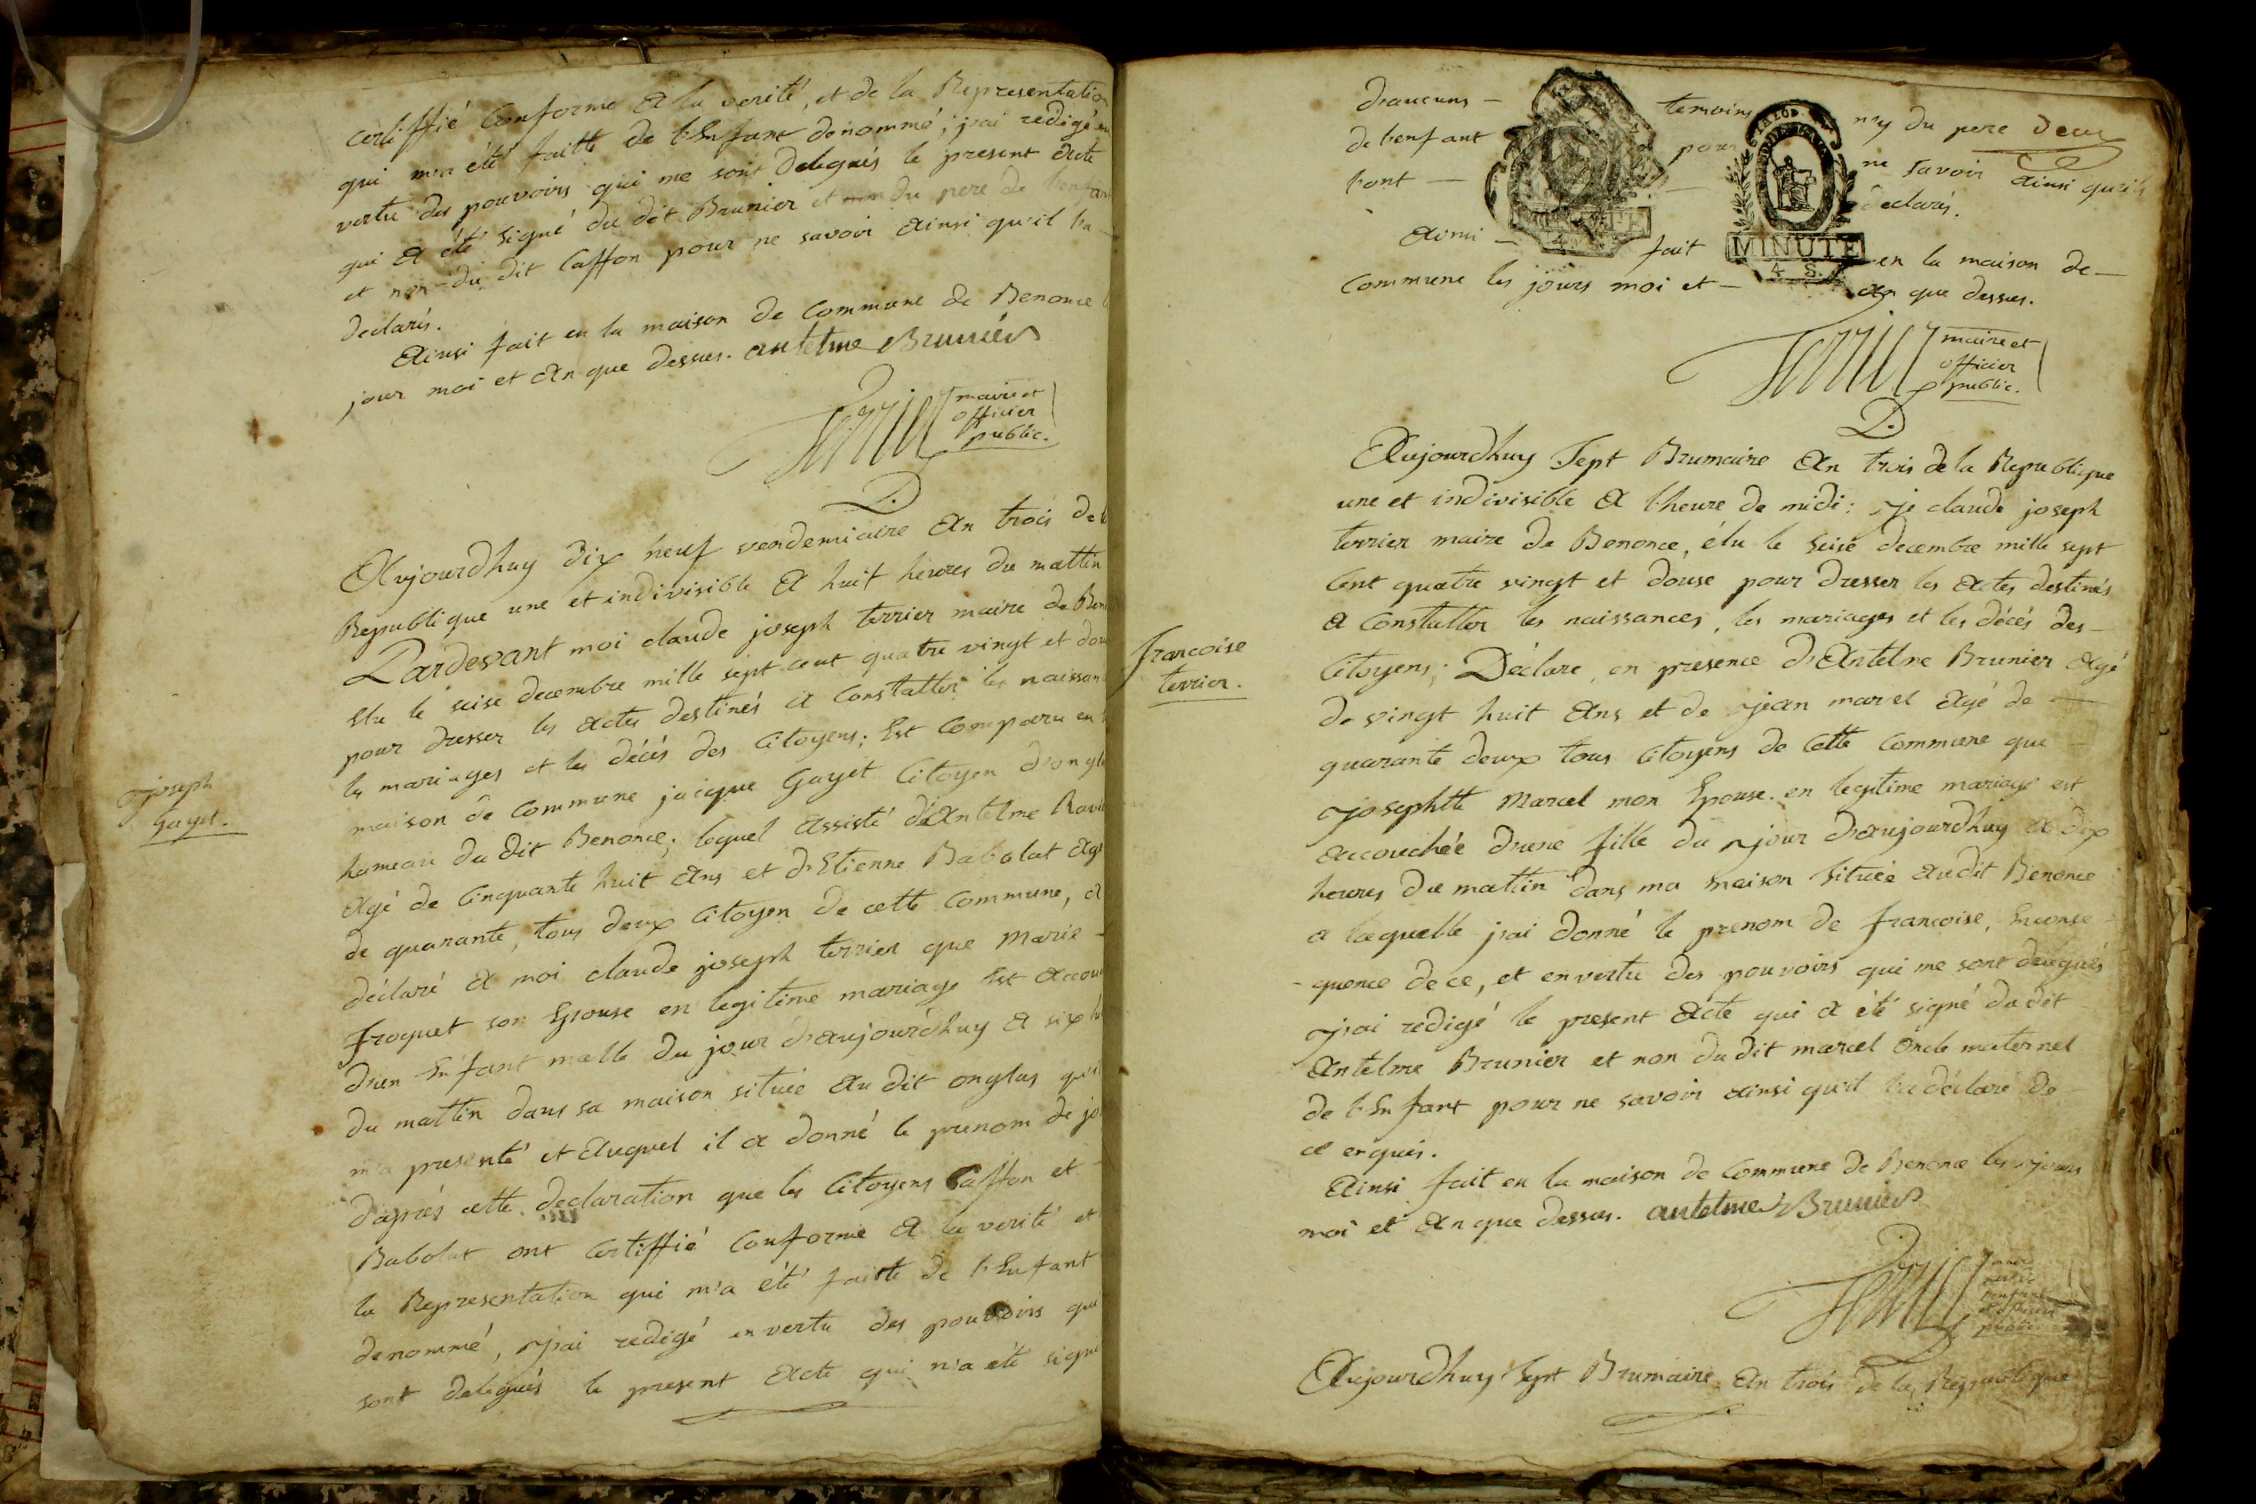 certiffié conforme a la verité, et de la Representation
qui m'a été faitte de l'Enfant denommé; j'ai redigé en
vertu des pouvoirs qui me sont delegués le present acte
qui a été signé du dit Brunier et non du pere de l'enfant
et non du dit Caffon pour ne savoir ainsi qu'il l'a
declarés.
Ainsi fait en la maison de commune de Benonce
jour moi et an que dessus. antelme Brunier
Terrier maire et
officier
public.
Aujourdhuy dix neuf vendemiaire an trois de la
Republique une et indivisible a huit heures du mattin
Pardevant moi claude joseph terrier maire de Ben
elu le seise decembre mille sept cent quatre vingt et dou
pour dresser les actes destinés a constatter les naissan
les mariages et les décés des citoyens; Est comparu en l
maison de commune jacque Gayet citoyen d'ongla
joseph
Gayet.
hameau du dit Benonce; lequel assisté d'antelme
agé de cinquante huit ans et d'Etienne Babolat agé
de quarante, tous deux citoyen de cette commune, a
déclaré a moi claude joseph terrier que Marie
froquet son Epouse en legitime mariage Est accou
d'un Enfant malle du jour d'aujourdhuy a six h
du mattin dans sa maison située au dit onglas qu'il
m'a presenté et auquel il a donné le prenom de jo
d'aprés cette declaration que les citoyens Caffon et
Babolat ont certiffié conforme a la verité et
la Representation qui m'a été faitte de l'Enfant
denommé, j'ai redigé en vertu des pouvoirs qui
sont delegués le present acte qui n'a été signé
d'aucuns temoins ny du pere deux
de l'enfant pour ne savoir ainsi qu'ils
l'ont declarés.
MINUTE
4 S.
Ainsi fait en la maison de
commune les jours moi et an que dessus.
Terrier maire et
officier
public.
Aujourdhuy Sept Brumaire an trois de la Republique
une et indivisible a l'heure de midi: je claude joseph
terrier maire de Benonce, élu le seise decembre mille sept
cent quatre vingt et douse pour dresser les actes destinés
a constatter les naissances, les mariages et les décés des
francoise
terrier.
citoyens; Declare, en presence d'antelme Brunier agé
de vingt huit ans et de jean marcel agé de
quarante deux tous citoyens de cette commune que
josephtte Marcel mon Epouse en legitime mariage est
accouchée d'une fille du jour d'aujourdhuy a dix
heures du mattin dans ma maison située au dit Benonce
a laquelle j'ai donné le prenom de francoise, Enconse
quence de ce, et en vertu des pouvoirs qui me sont delegués
j'ai redigé le present acte qui a été signé du dit
antelme Brunier et non du dit marcel oncle maternel
de l'Enfant pour ne savoir ainsi qu'il l'a déclaré de
ce enquis.
Ainsi fait en la maison de commune de Benonce les jours
moi et an que dessus. antelme Brunier
Terrier
public
Aujourdhuy Sept Brumaire an trois de la Republique